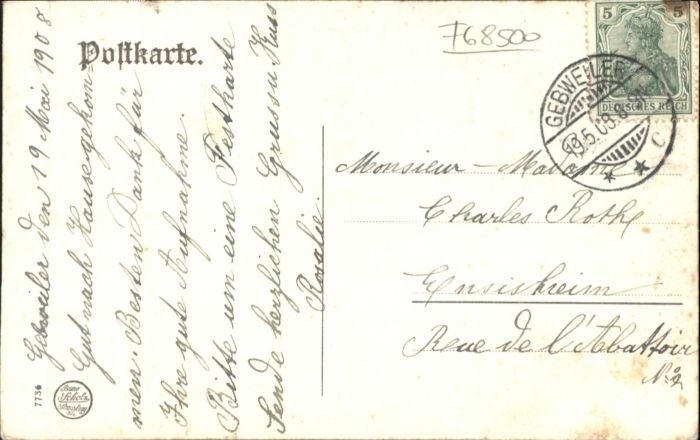 Postkarte.
768500
5 5
DEUTSCHES REICH
GEBWEILER
19.5.08.
C
Gebweiler den 19 Mai 1908
Gut nach Hause gekom-
men. Besten Dank für
Ihre gute Aufnahme.
Bitte um eine Festkarte
Sende herzlichen Gruss u Kuss
Rosalie.
Monsieur - Madame
Charles Rothe
Ensisheim
Rue de l'Abattoir
No 2
7736
Scholz